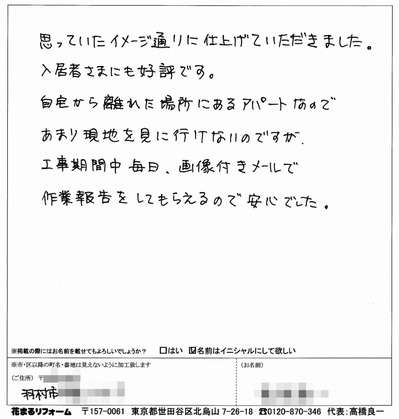 思っていたイメージ通りに仕上げていただきました。
入居者さまにも好評です。
自宅から離れた場所にあるアパートなので
あまり現地を見に行けないのですが、
工事期間中毎日、画像付きメールで
作業報告をしてもらえるので安心でした。
※掲載の際にはお名前を載せてもよろしいでしょうか? □はい ☑名前はイニシャルにして欲しい
※市・区以降の町名・番地は見えないように加工致します
(ご住所) 〒
(お名前)
羽村市
花まるリフォーム 〒157-0061 東京都世田谷区北烏山7-26-18 ☎0120-870-346 代表:高橋良一